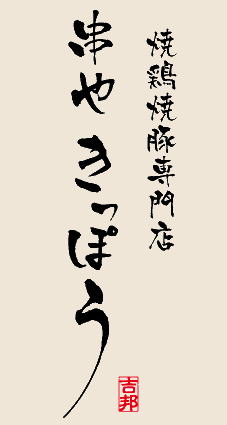 焼鶏焼豚専門店
串や きっぽう
吉邦